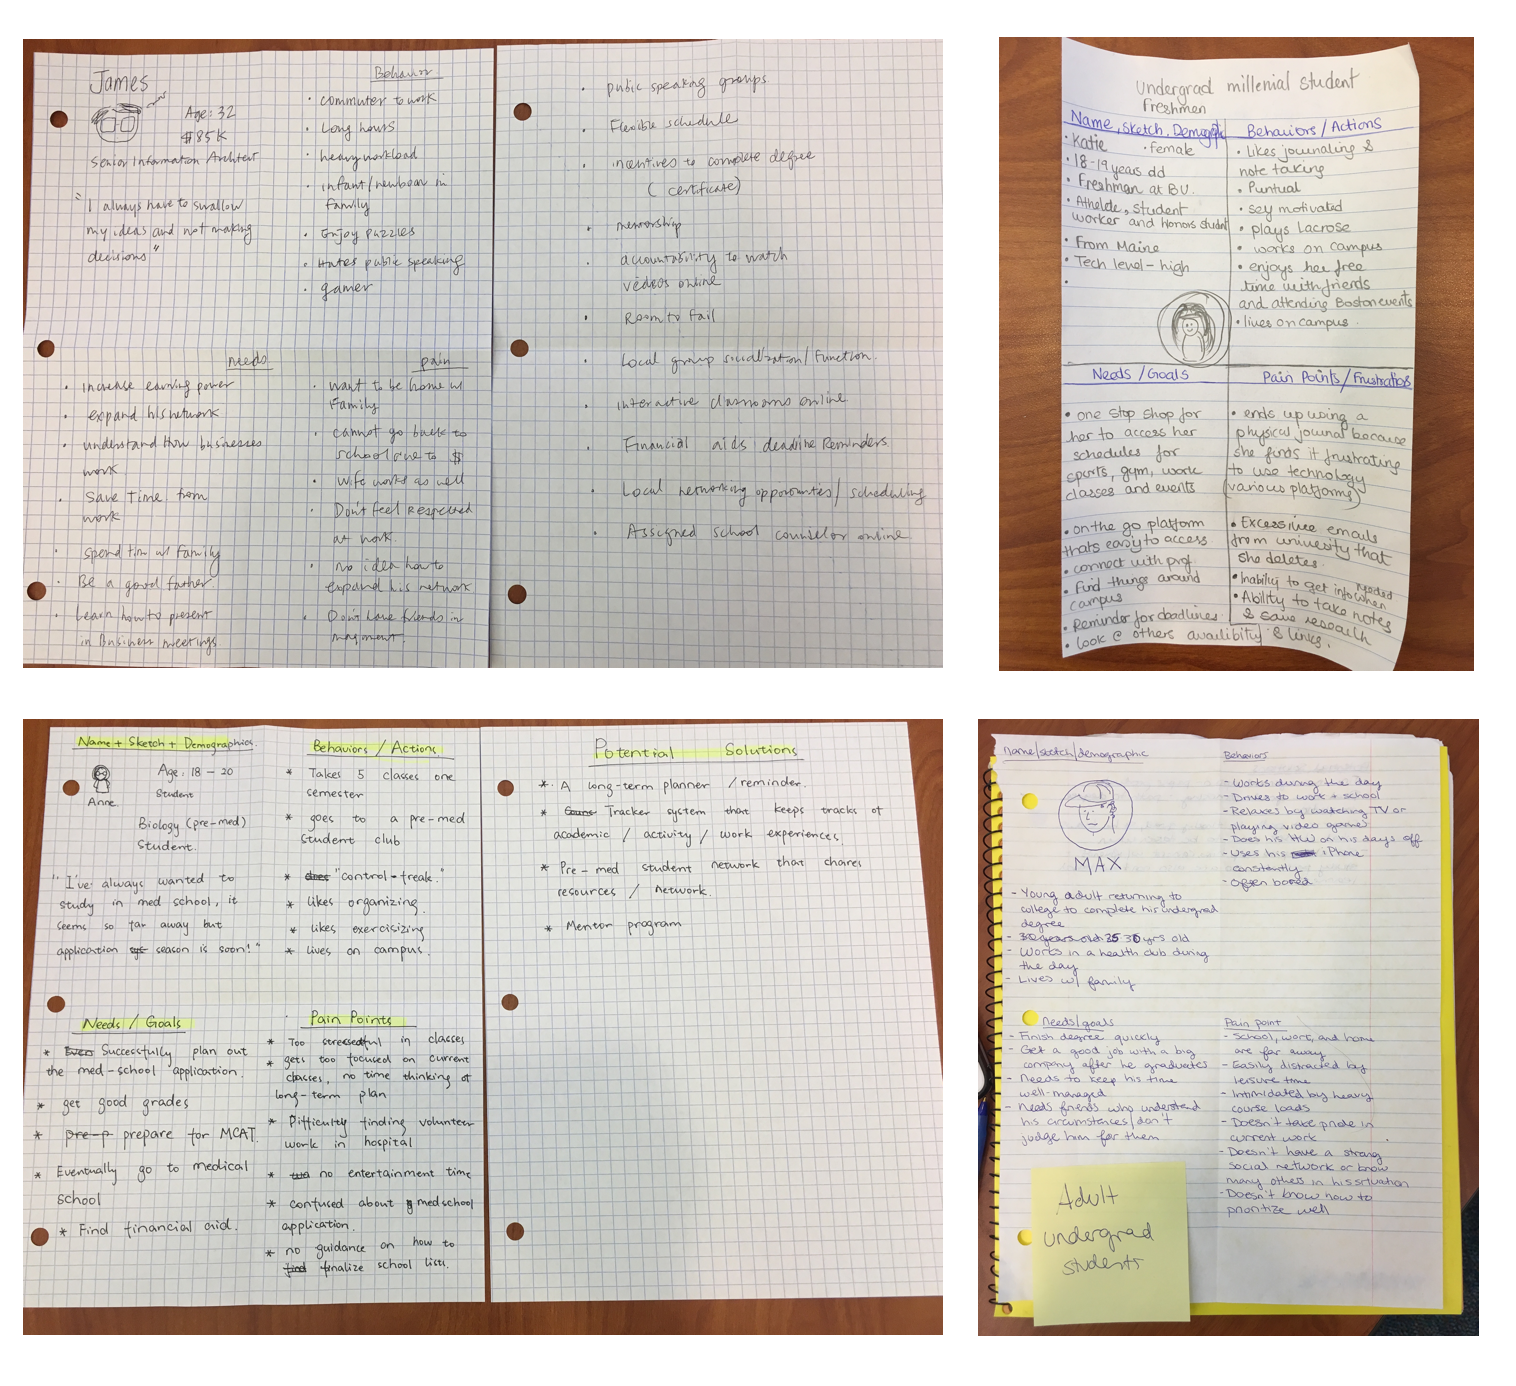 James
Age: 32
$85K
Senior Information Architect
"I always have to swallow
my ideas and not making
decisions"
Behavior
• commuter to work
• Long hours
• heavy workload
• infant/newborn in
family
• Enjoy puzzles
• Hates public speaking
• gamer
needs
• increase earning power
• expand his network
• understand How businesses
work
• Save Time from
work
• spend tim w/ family
• Be a good father.
• Learn how to present
in Business meetings
pain
• want to be home w/
Family
• cannot go back to
school due to $
• Wife works as well
• Don't feel Respected
at work.
• no idea how to
expand his network
• Don't have friends in
public speaking groups.
• Flexible schedule
• incentives to complete degree
(certificate)
• mentorship
• accountability to watch
videos online
• Room to fail
• Local group socialization/function.
• interactive classrooms online
• Financial aids deadline Reminders
• Local networking opportunities/scheduling
• Assigned school counselor online.
Undergrad millenial student
Freshmen
Name, Sketch,
• Katie • female
• 18-19 years old
• Freshmen at BU.
• student
worker and Honors student
• From Maine
• Tech level - high
•
Behaviors/Actions
• likes journaling &
note taking
• Puntual
• motivated
• plays Lacrose
• works on campus
• enjoys her free
time with friends
and attending Boston events
• lives on campus.
Needs/Goals
• one stop shop for
her to access her
schedules for
sports, gym, work
classes and events
• on the go platform
thats easy to access
• connect with prof
• Find things around
campus
• Reminder for deadlines.
• Look @ others availibity & links.
Pain Points/Frustrations
• ends up using a
physical journal because
she finds it frustrating
to use technology
(various platforms)
• Excessive emails
from university that
she deletes.
• Inability to get info when needed
• Ability to take notes
& save research
Name + Sketch + Demographics.
Anne
Age: 18 - 20
Student
Biology (pre-med)
Student.
"I've always wanted to
study in med school, it
seems so far away but
application season is soon!"
Behaviors / Actions
* Takes 5 classes one
semester
* goes to a pre-med
student club
* does "control-freak."
* likes organizing.
* likes exercisizing
* lives on campus.
Needs / Goals
* Successfully plan out
the med-school application.
* get good grades
* pre-p prepare for MCAT.
* Eventually go to medical
school
* Find financial aid.
Pain Points
* Too stressedful in classes
* gets too focused on current
classes, no time thinking of
long-term plan
* Difficulty finding volunteer
work in hospital
* no entertainment time
* confused about medschool
application.
* no guidance on how to
find finalize school lists.
Potential Solutions
* A long-term planner / reminder.
* Tracker system that keeps tracks of
academic / activity / work experiences.
* Pre-med student network that chares
resources / network.
* Mentor program
name/sketch/demographic
MAX
- Young adult returning to
college to complete his undergrad
degree
yrs old
- Works in a health club during
the day
- Lives w/ family
Behaviors
- Works during the day
- Drives to work + school
- Relaxes by watching TV or
playing video games
- Does his HW on his days off
- Uses his iPhone
constantly
- Often bored
Needs/goals
- Finish degree quickly
- Get a good job with a big
company after he graduates
- Needs to keep his time
well-managed
- Needs friends who understand
his circumstances/don't
judge him for them
Pain point
- School, work, and home
are far away
- Easily distracted by
leisure time
- Intimidated by heavy
course loads
- Doesn't take pride in
current work
- Doesn't have a strong
social network or know
many others in his situation
- Doesn't know how to
prioritize well
Adult
undergrad
students